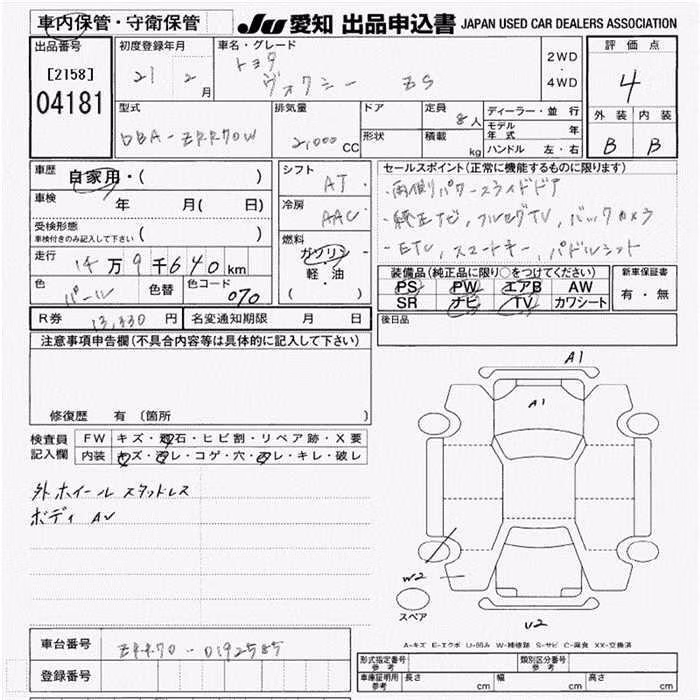 車内保管・守衛保管
JU 愛知 出品申込書 JAPAN USED CAR DEALERS ASSOCIATION
出品番号
[2158]
04181
初度登録年月
21 2 月
車名・グレード
トヨタ
ヴォクシー ZS
2WD
・
4WD
評価点
4
外装 内装
B B
型式
DBA-ZRR70W
排気量
2,000 CC
ドア
形状
定員
8人
積載
kg
ディーラー・並行
モデル年式 年
ハンドル 左・右
車歴
自家用・( )
車検
年 月( 日)
受検形態
車検付きのみ記入して下さい ( )
走行
14万9千640km
色
パール
色替
色コード
070
シフト
AT
冷房
AAC
燃料
ガソリン
・
軽・油
( )
セールスポイント(正常に機能するものに限ります)
・両側パワースライドドア
・純正ナビ, フルセグTV, バックカメラ
・ETC, スマートキー, パドルシフト
装備品(純正品に限り○をつけてください)
PS PW エアB AW
SR ナビ TV カワシート
新車保証書
有・無
R券 13,330 円
名変通知期限 月 日
後日品
注意事項申告欄(不具合内容等は具体的に記入して下さい)
修復歴 有 〔箇所 〕
検査員
記入欄
FW キズ・飛石・ヒビ割・リペア跡・X要
内装 キズ・汚レ・コゲ・穴・スレ・キレ・破レ
外ホイール スタッドレス
ボディ AV
A1
A1
W2
スペア
U2
A-キズ E-エクボ U-凹み W-補修跡 S-サビ C-腐食 XX-交換済
車台番号
ZRR70-0192585
登録番号
形式指定番号
参考
類別区分番号
参考
車庫証明用
参考
長さ cm 幅 cm 高さ cm